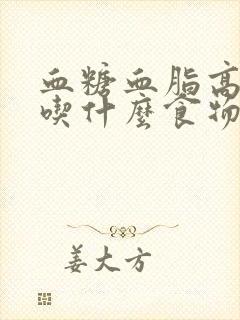 血糖血脂高
喫什麽食物
姜大方